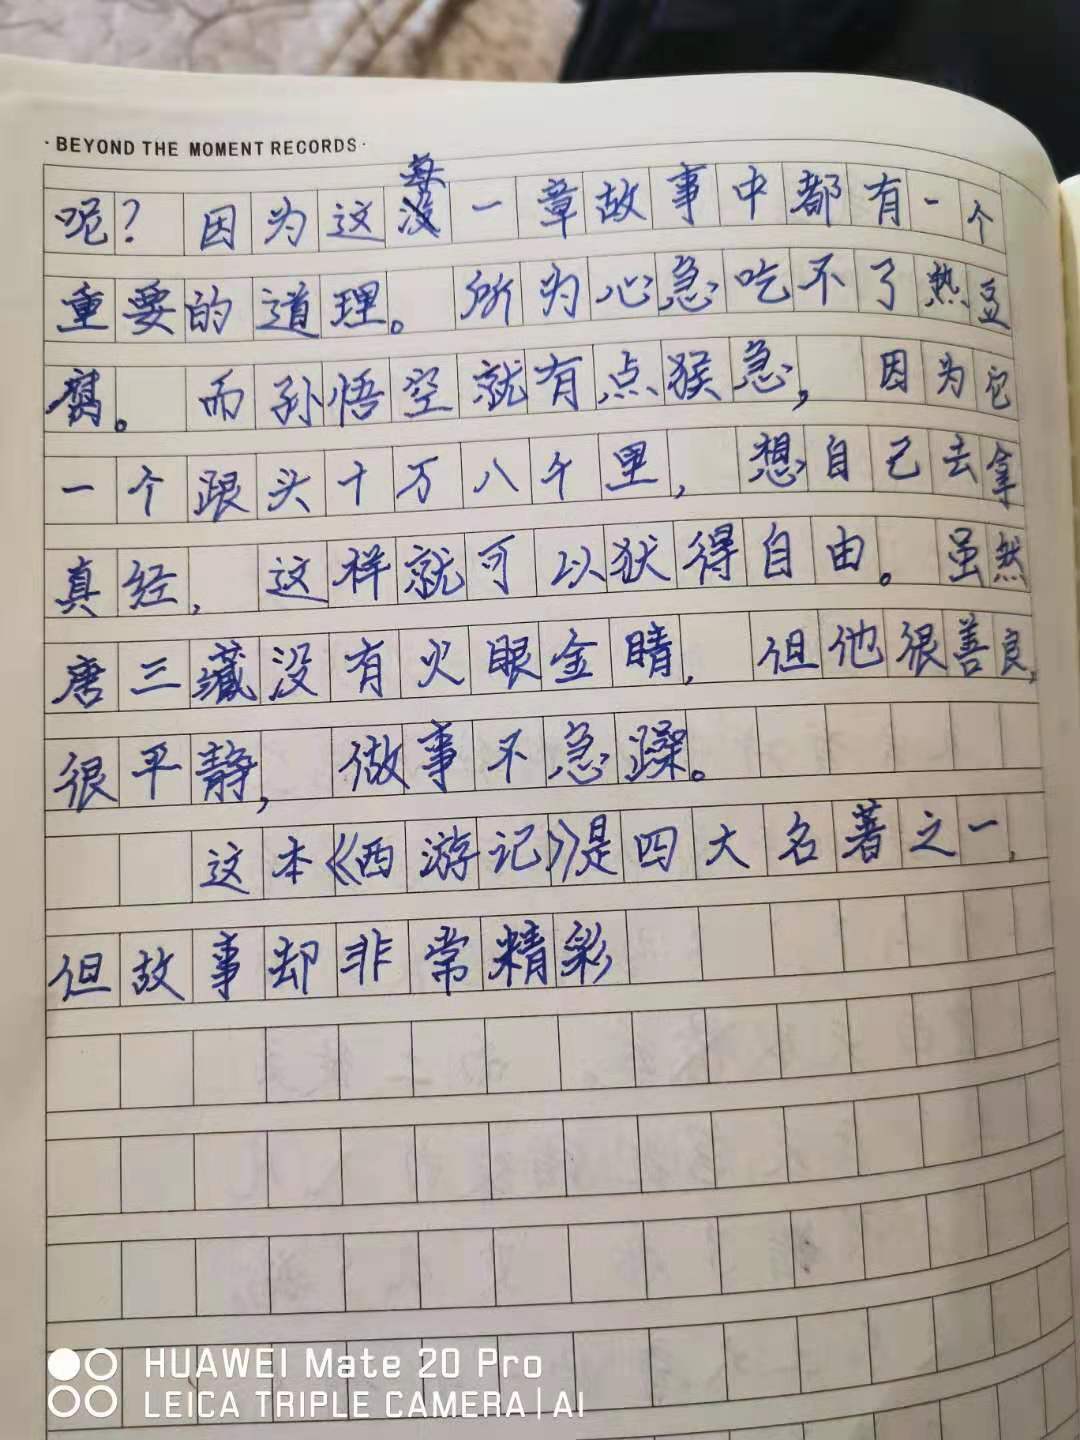 ·BEYOND THE MOMENT RECORDS·
呢？因为这每一章故事中都有一个
重要的道理。所为心急吃不了热豆
腐。而孙悟空就有点猴急，因为它
一个跟头十万八千里，想自己去拿
真经，这样就可以获得自由。虽然
唐三藏没有火眼金睛，但他很善良，
很平静，做事不急躁。
这本《西游记》是四大名著之一，
但故事却非常精彩
HUAWEI Mate 20 Pro
LEICA TRIPLE CAMERA | AI